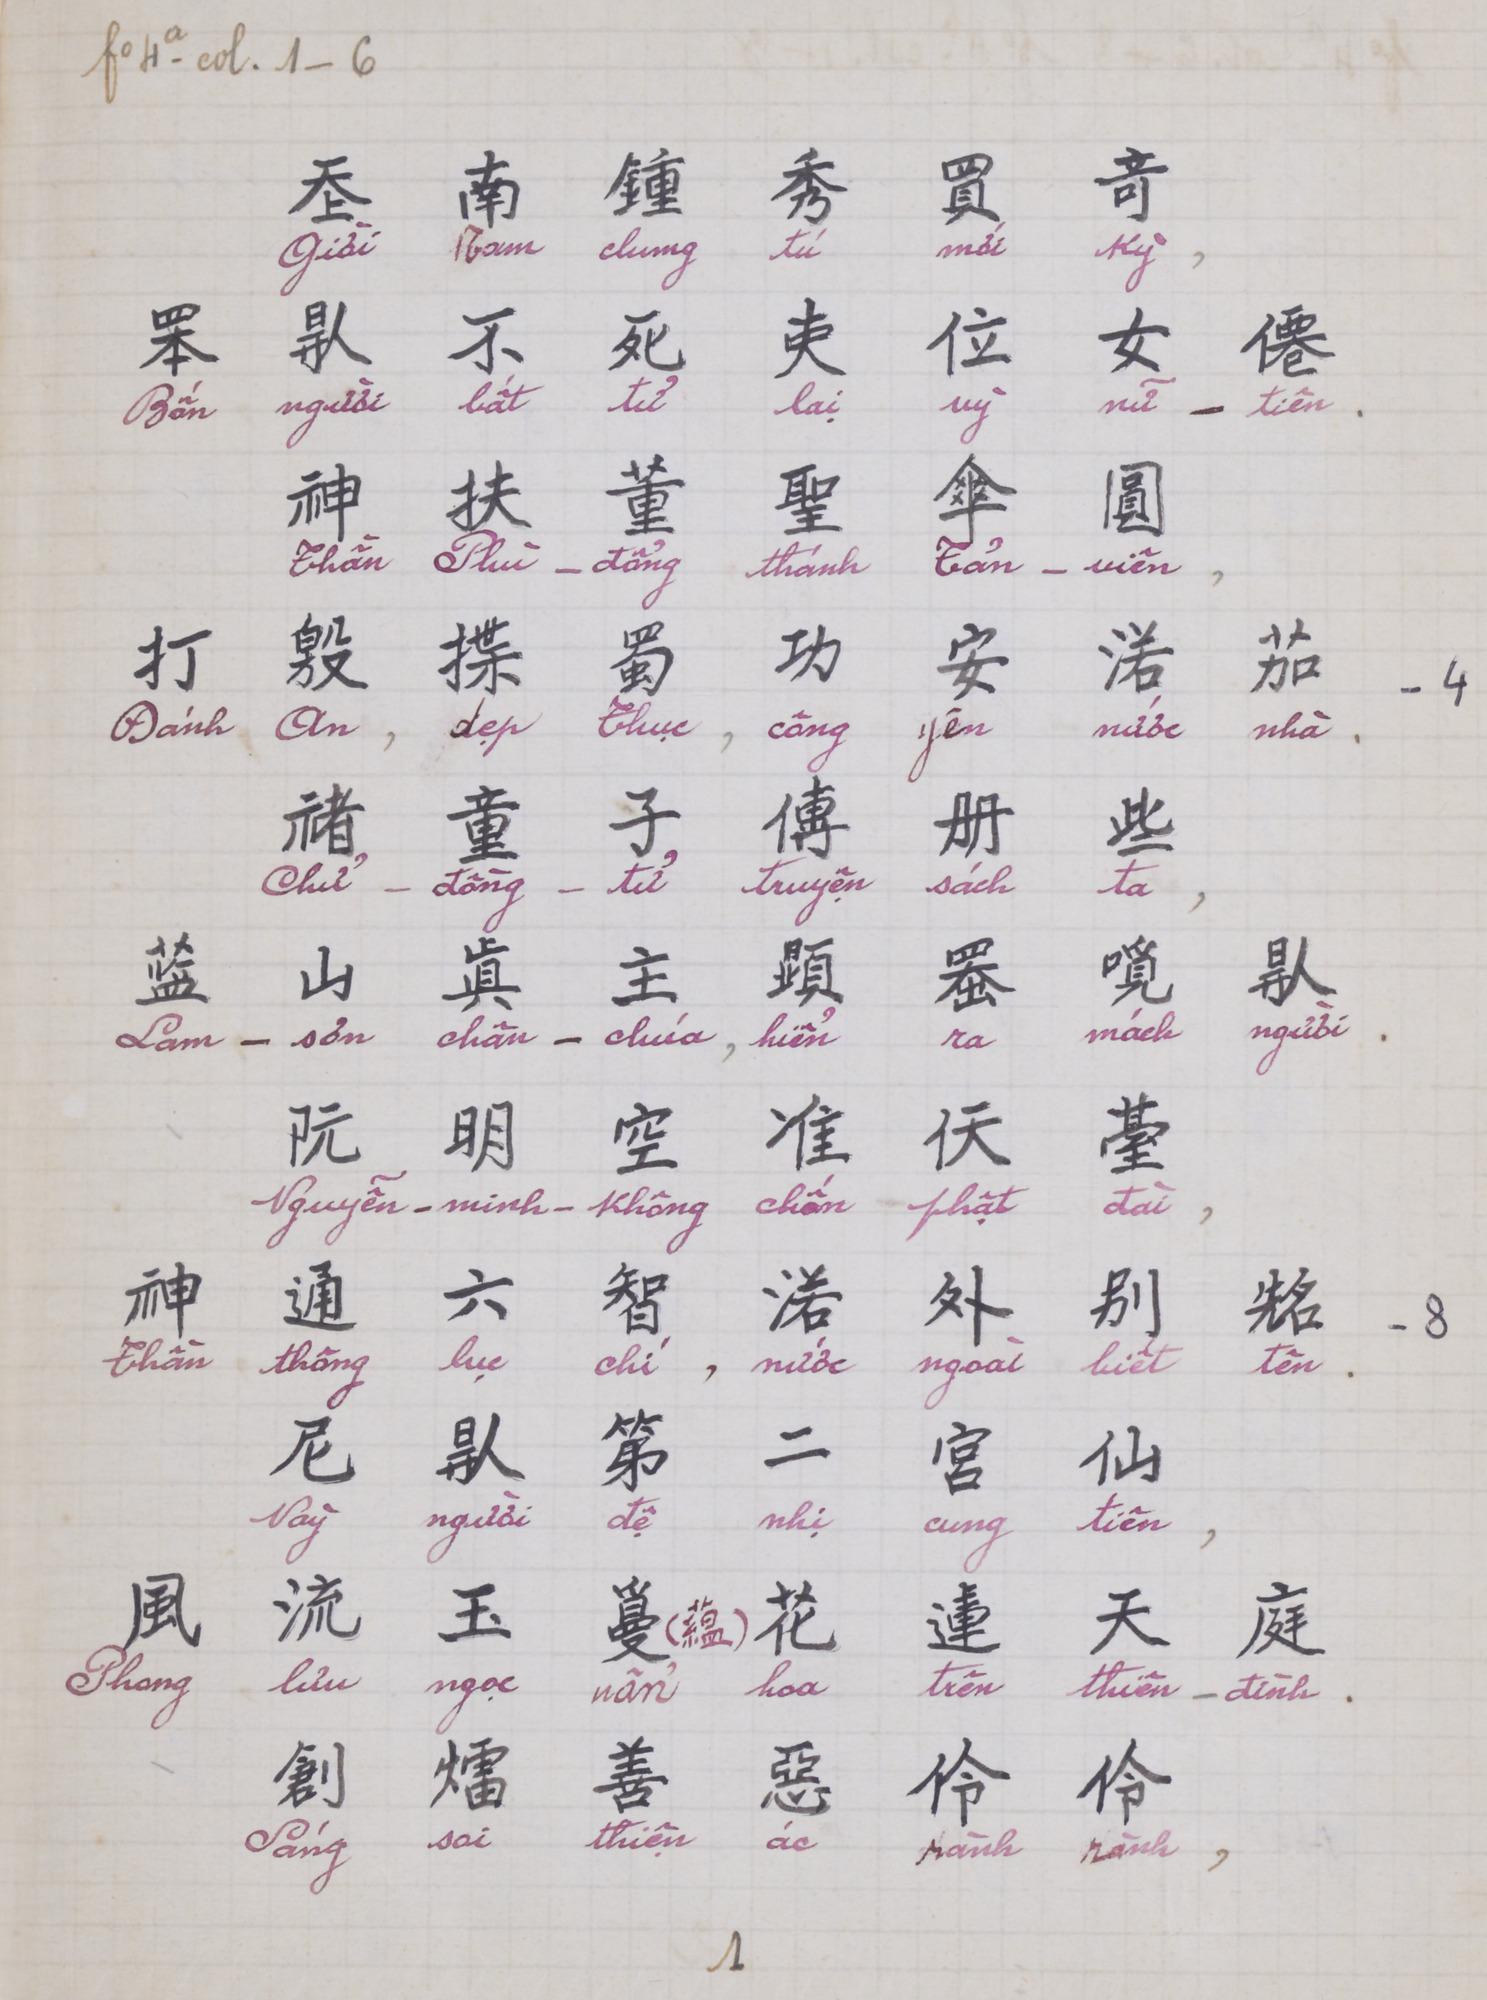 fº 4ª - col. 1 – 6
𡗶 南 鍾 秀 買 奇
Giời Nam chung tú mới kỳ,
𦊚 𠊚 不 死 吏 位 女 僊
Bốn người bất tử lại vỳ nữ – tiên.
神 扶 董 聖 傘 圓
Thần Phù – đổng thánh Tản – viên,
打 殷 揲 蜀 功 安 渃 茹 - 4
Đánh Ân, dẹp Thục, công yên nước nhà.
褚 童 子 傳 册 些
Chử – đồng – tử truyện sách ta,
藍 山 眞 主 顕 𦋦 𠸍 𠊚
Lam – sơn chân – chúa, hiển ra mách người.
阮 明 空 准 仸 臺
Nguyễn – minh – không chốn phật đài,
神 通 六 智 渃 外 别 𠸛 - 8
Thần thông lục chí, nước ngoài biết tên.
尼 𠊚 第 二 宮 仙
Nầy người đệ nhị cung tiên,
風 流 玉 (蘊) 花 蓮 天 庭
Phong lưu ngọc uẩn hoa trên thiên – đình.
創 𤐝 善 惡 伶 伶
Sáng soi thiện ác rành rành,
1